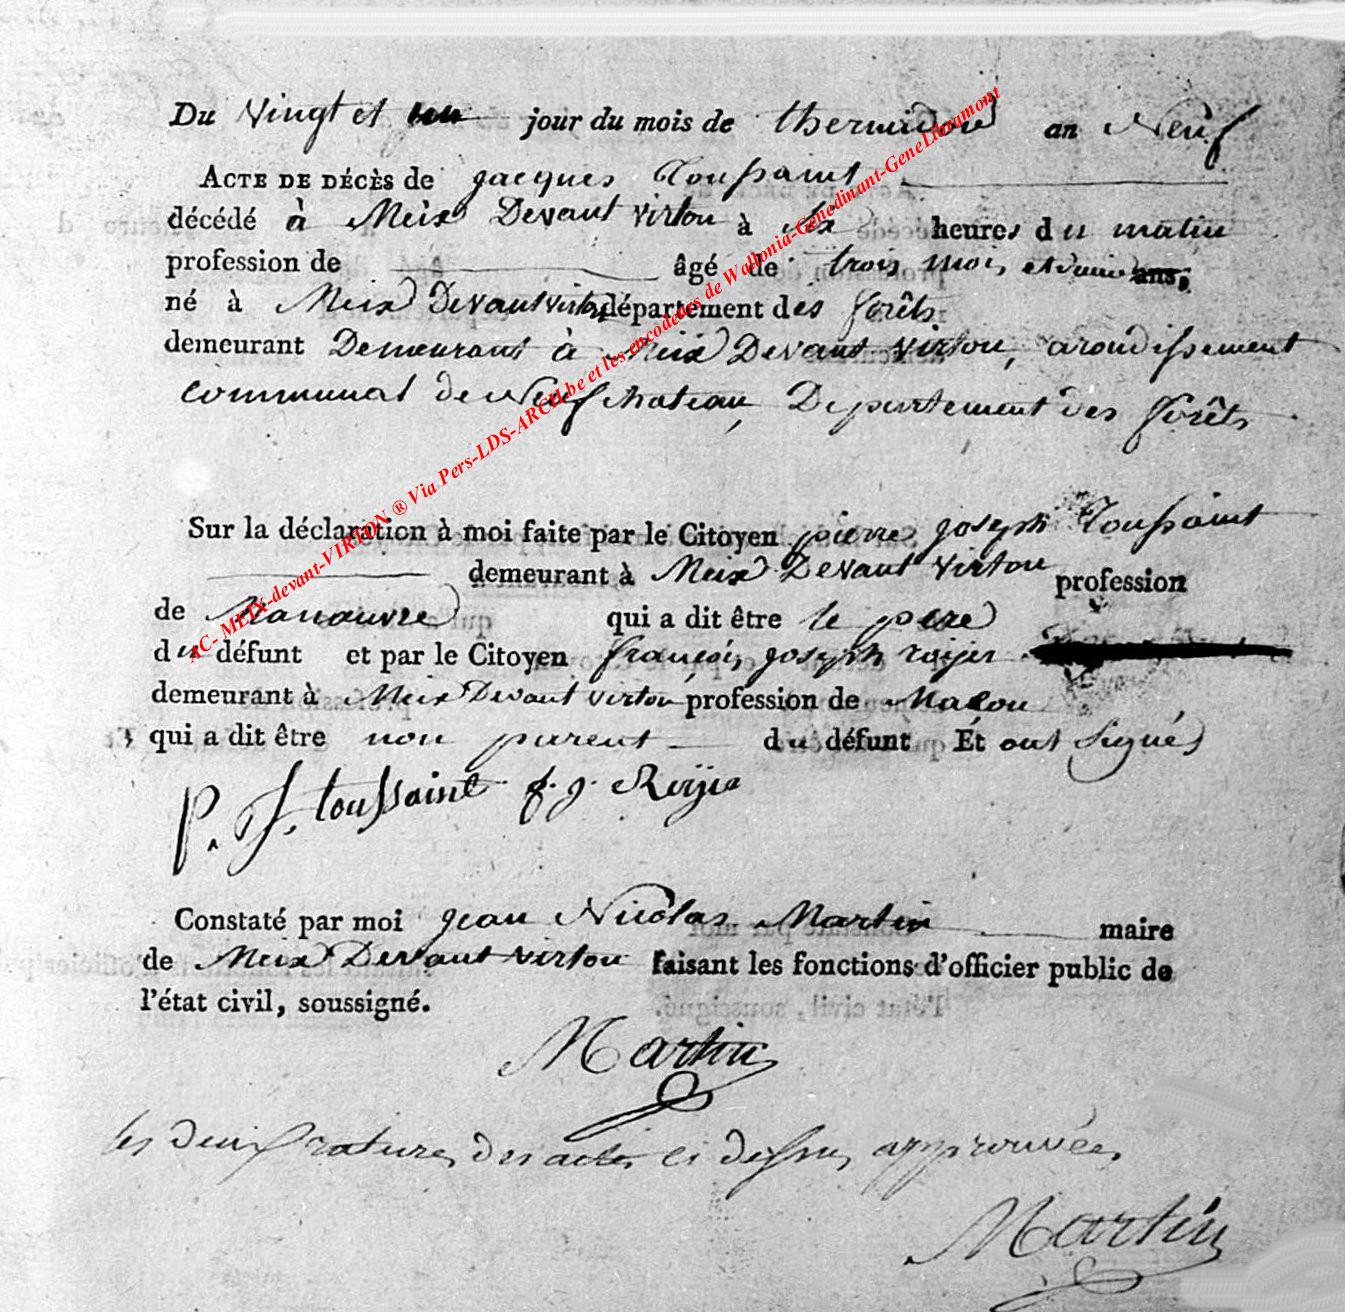 Du Vingt et un jour du mois de thermidor an Neuf
ACTE DE DÉCÈS de jacques Toussaint
décédé à Meix Devant virton à six heures du matin
profession de âgé de trois mois et demi ans,
né à Meix Devant virton département des forêts
demeurant Demeurant à Meix Devant virton, arondissement
communal de Neufchateau, Departement des forêts
Sur la déclaration à moi faite par le Citoyen pierre joseph Toussaint
demeurant à Meix Devant virton profession
de Manouvre qui a dit être le pere
du défunt et par le Citoyen françois joseph roijer
demeurant à Meix Devant virton profession de Macon
qui a dit être non parent du défunt Et ont Signés
P. J. toussaint f. j. Roijer
Constaté par moi jean Nicolas Martin maire
de Meix Devant virton faisant les fonctions d'officier public de
l'état civil, soussigné.
Martin
les deux ratures des actes ci dessus approuvées
Martin
AC- MEIX-devant-VIRTON ® Via Pers-LDS-ARCH.be et les encodeurs de Wallonia-Genedinant-GeneLibramont